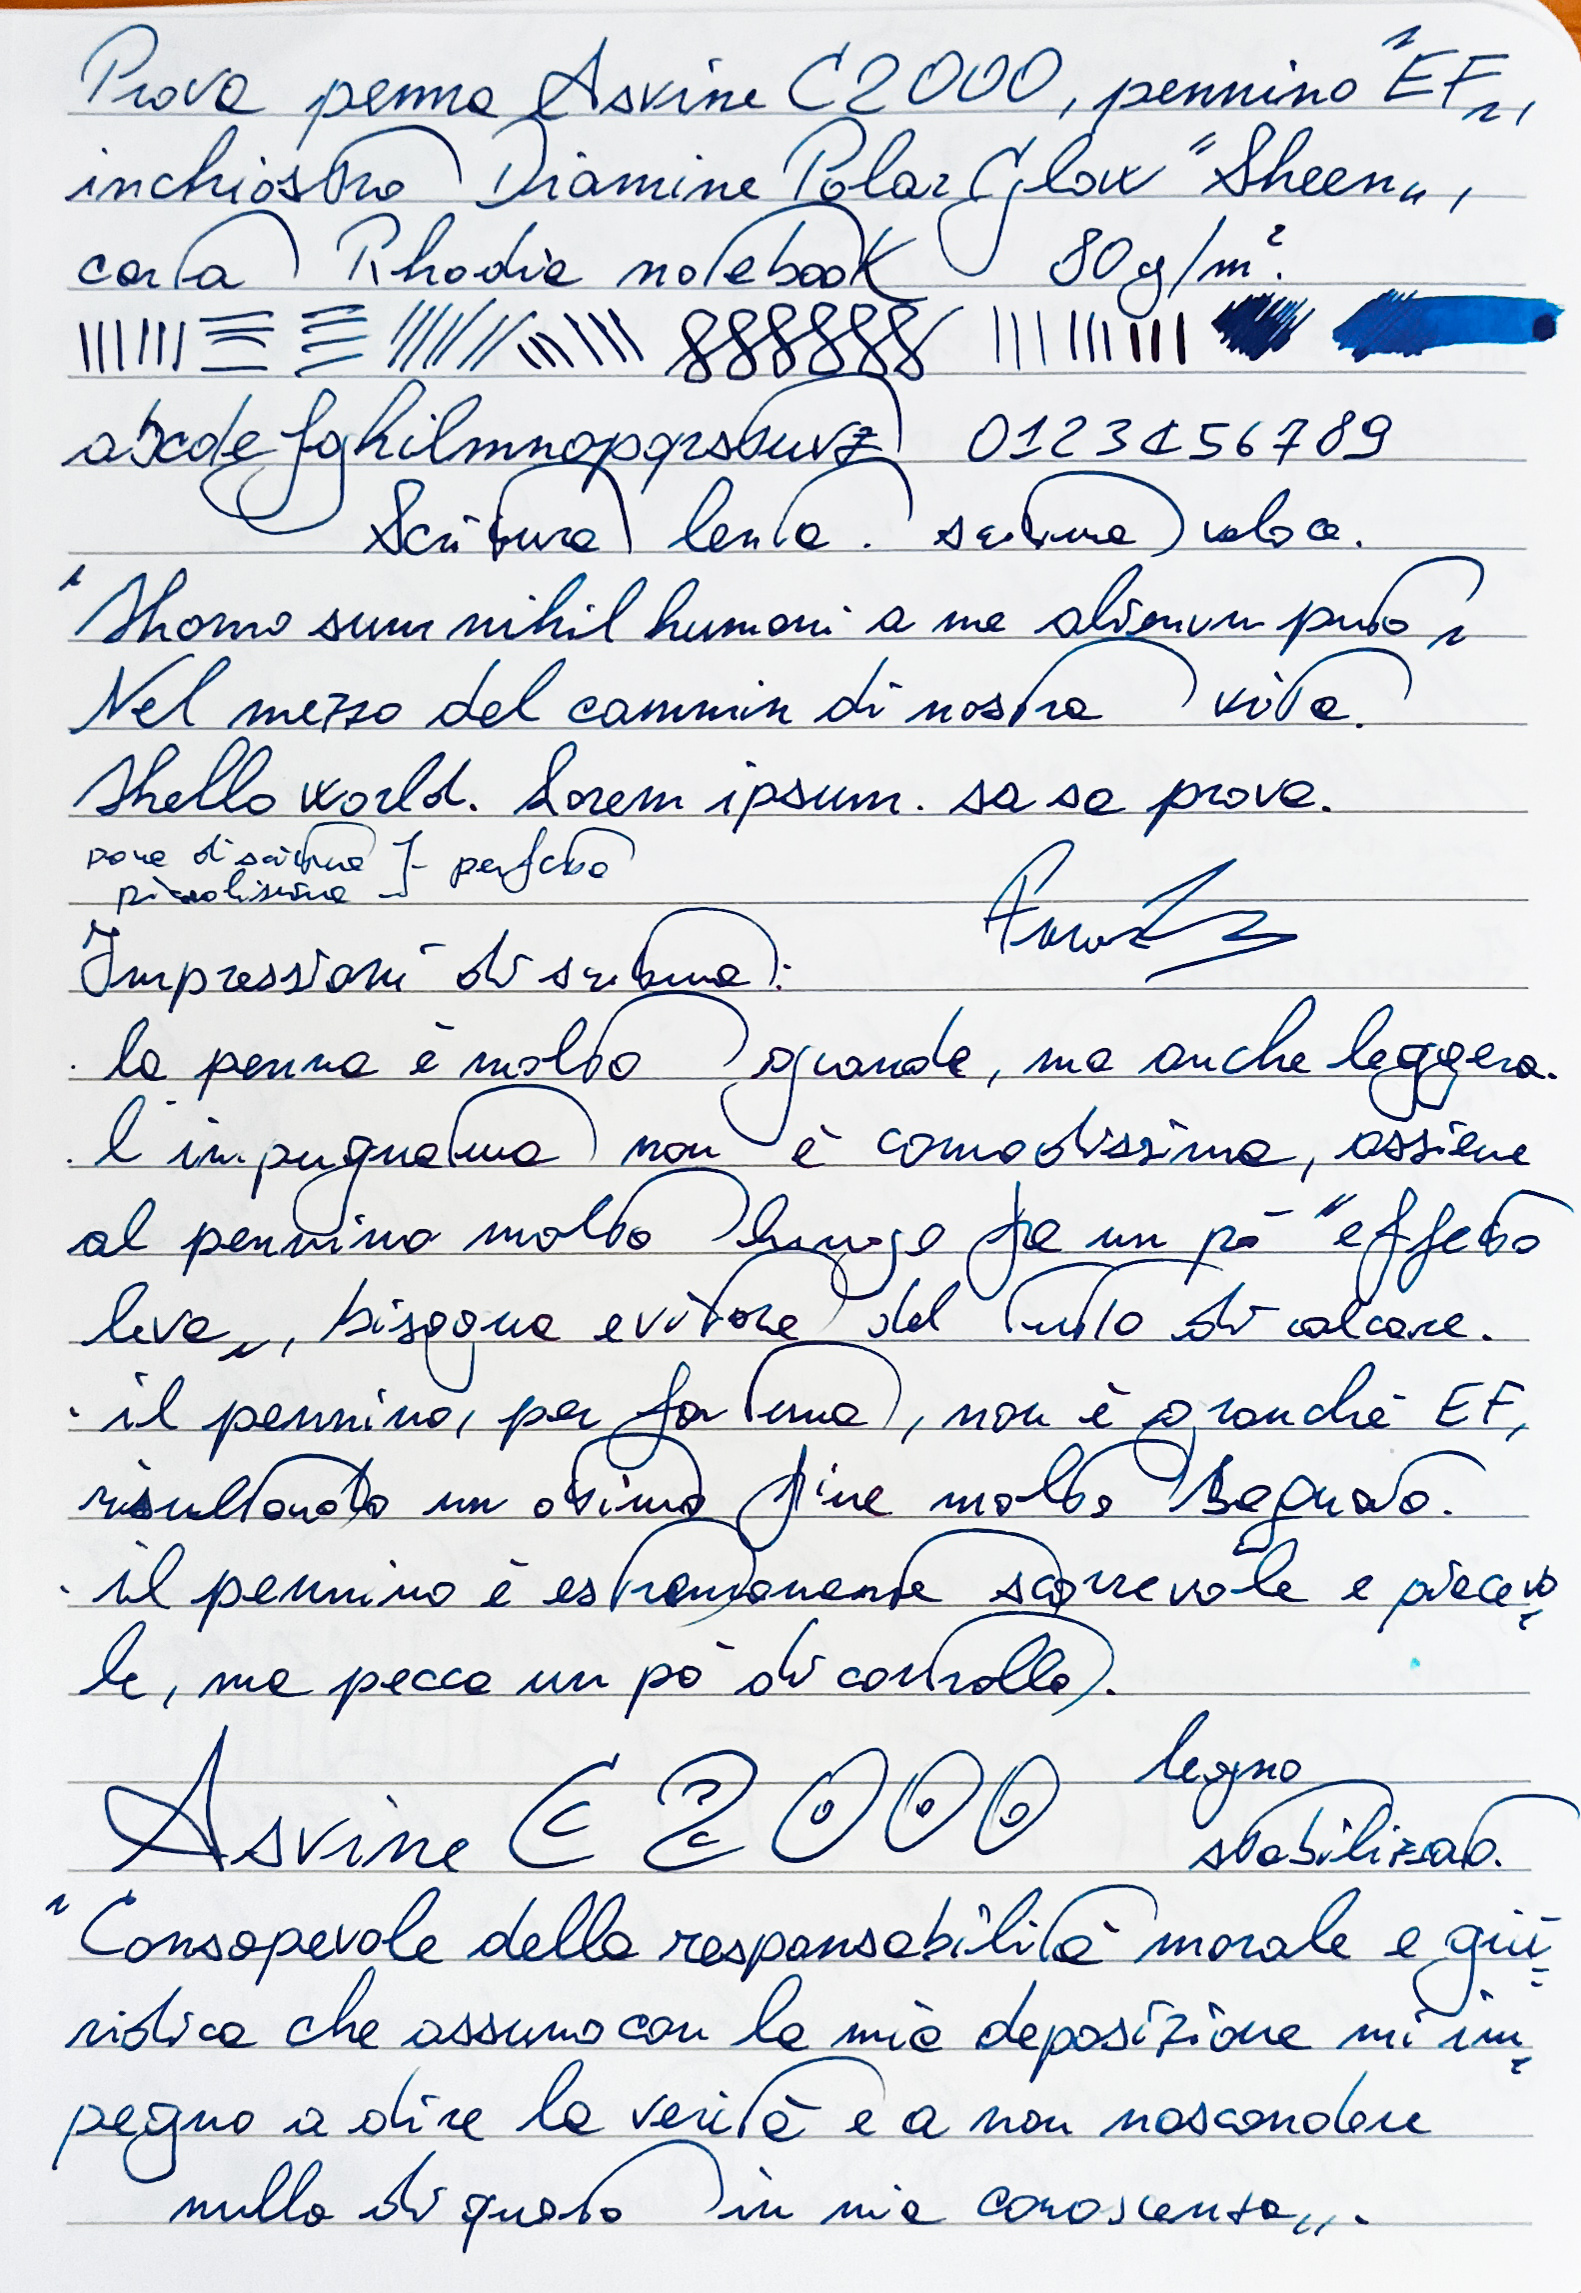 Prova penna Asvine C2000, pennino "EF",
inchiostro Diamine Polar Glow "Sheen",
carta Rhodia notebook 80g/m².
abcdefghilmnopqrstuvz 0123456789
Scrittura lenta. scrittura veloce.
"Homo sum nihil humani a me alienum puto"
Nel mezzo del cammin di nostra vita.
Hello world. Lorem ipsum. sa sa prova.
prova di scrittura
piccolissima } perfetto
Impressioni di scrittura:
· la penna è molto grande, ma anche leggera.
· l'impugnatura non è comodissima, assieme
al pennino molto lungo fa un pò "effetto
leva", bisogna evitare del tutto di calcare.
· il pennino, per fortuna, non è granché EF,
risultando un ottimo fine molto bagnato.
· il pennino è estremamente scorrevole e piacevo
le, ma pecca un pò di controllo.
Asvine C2000 legno
stabilizzato.
"Consapevole della responsabilità morale e giu
ridica che assumo con la mia deposizione mi im
pegno a dire la verità e a non nascondere
nulla di quanto in mia conoscenza".